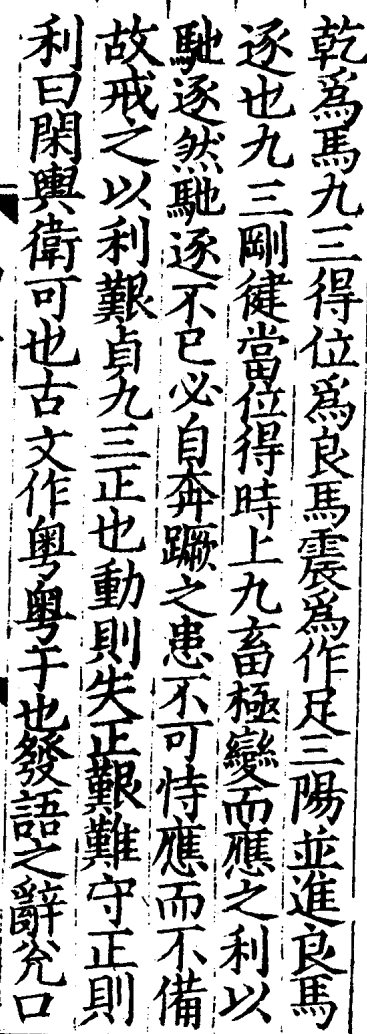 乾爲馬九三得位爲良馬震爲作足三陽並進良馬
逐也九三剛健當位得時上九畜極變而應之利以
馳逐然馳逐不已必自奔蹶之患不可恃應而不備
故戒之以利艱貞九三正也動則失正艱難守正則
利曰閑輿衛可也古文作粤粤于也發語之辭兊口